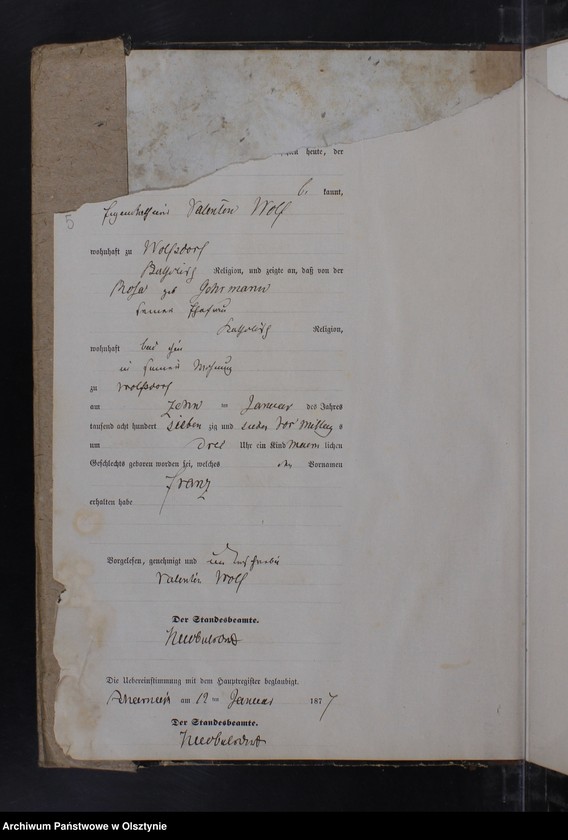 heute, der
kannt,
5
Valentin Wolf
wohnhaft zu Wolfsdorf
Religion, und zeigte an, daß von der
Rosa geb Gehrmann
seiner Ehefrau
katholisch Religion,
wohnhaft bei ihm
in seiner Wohnung
zu Wolfsdorf
am zehn ten Januar des Jahres
tausend acht hundert sieben zig und sieben Vor mittag s
um drei Uhr ein Kind männ lichen
Geschlechts geboren worden sei, welches den Vornamen
Franz
erhalten habe
Vorgelesen, genehmigt und unterschrieben
Valentin Wolf
Der Standesbeamte.
Die Uebereinstimmung mit dem Hauptregister beglaubigt.
am 12 ten Januar 1877
Der Standesbeamte.
Archiwum Państwowe w Olsztynie